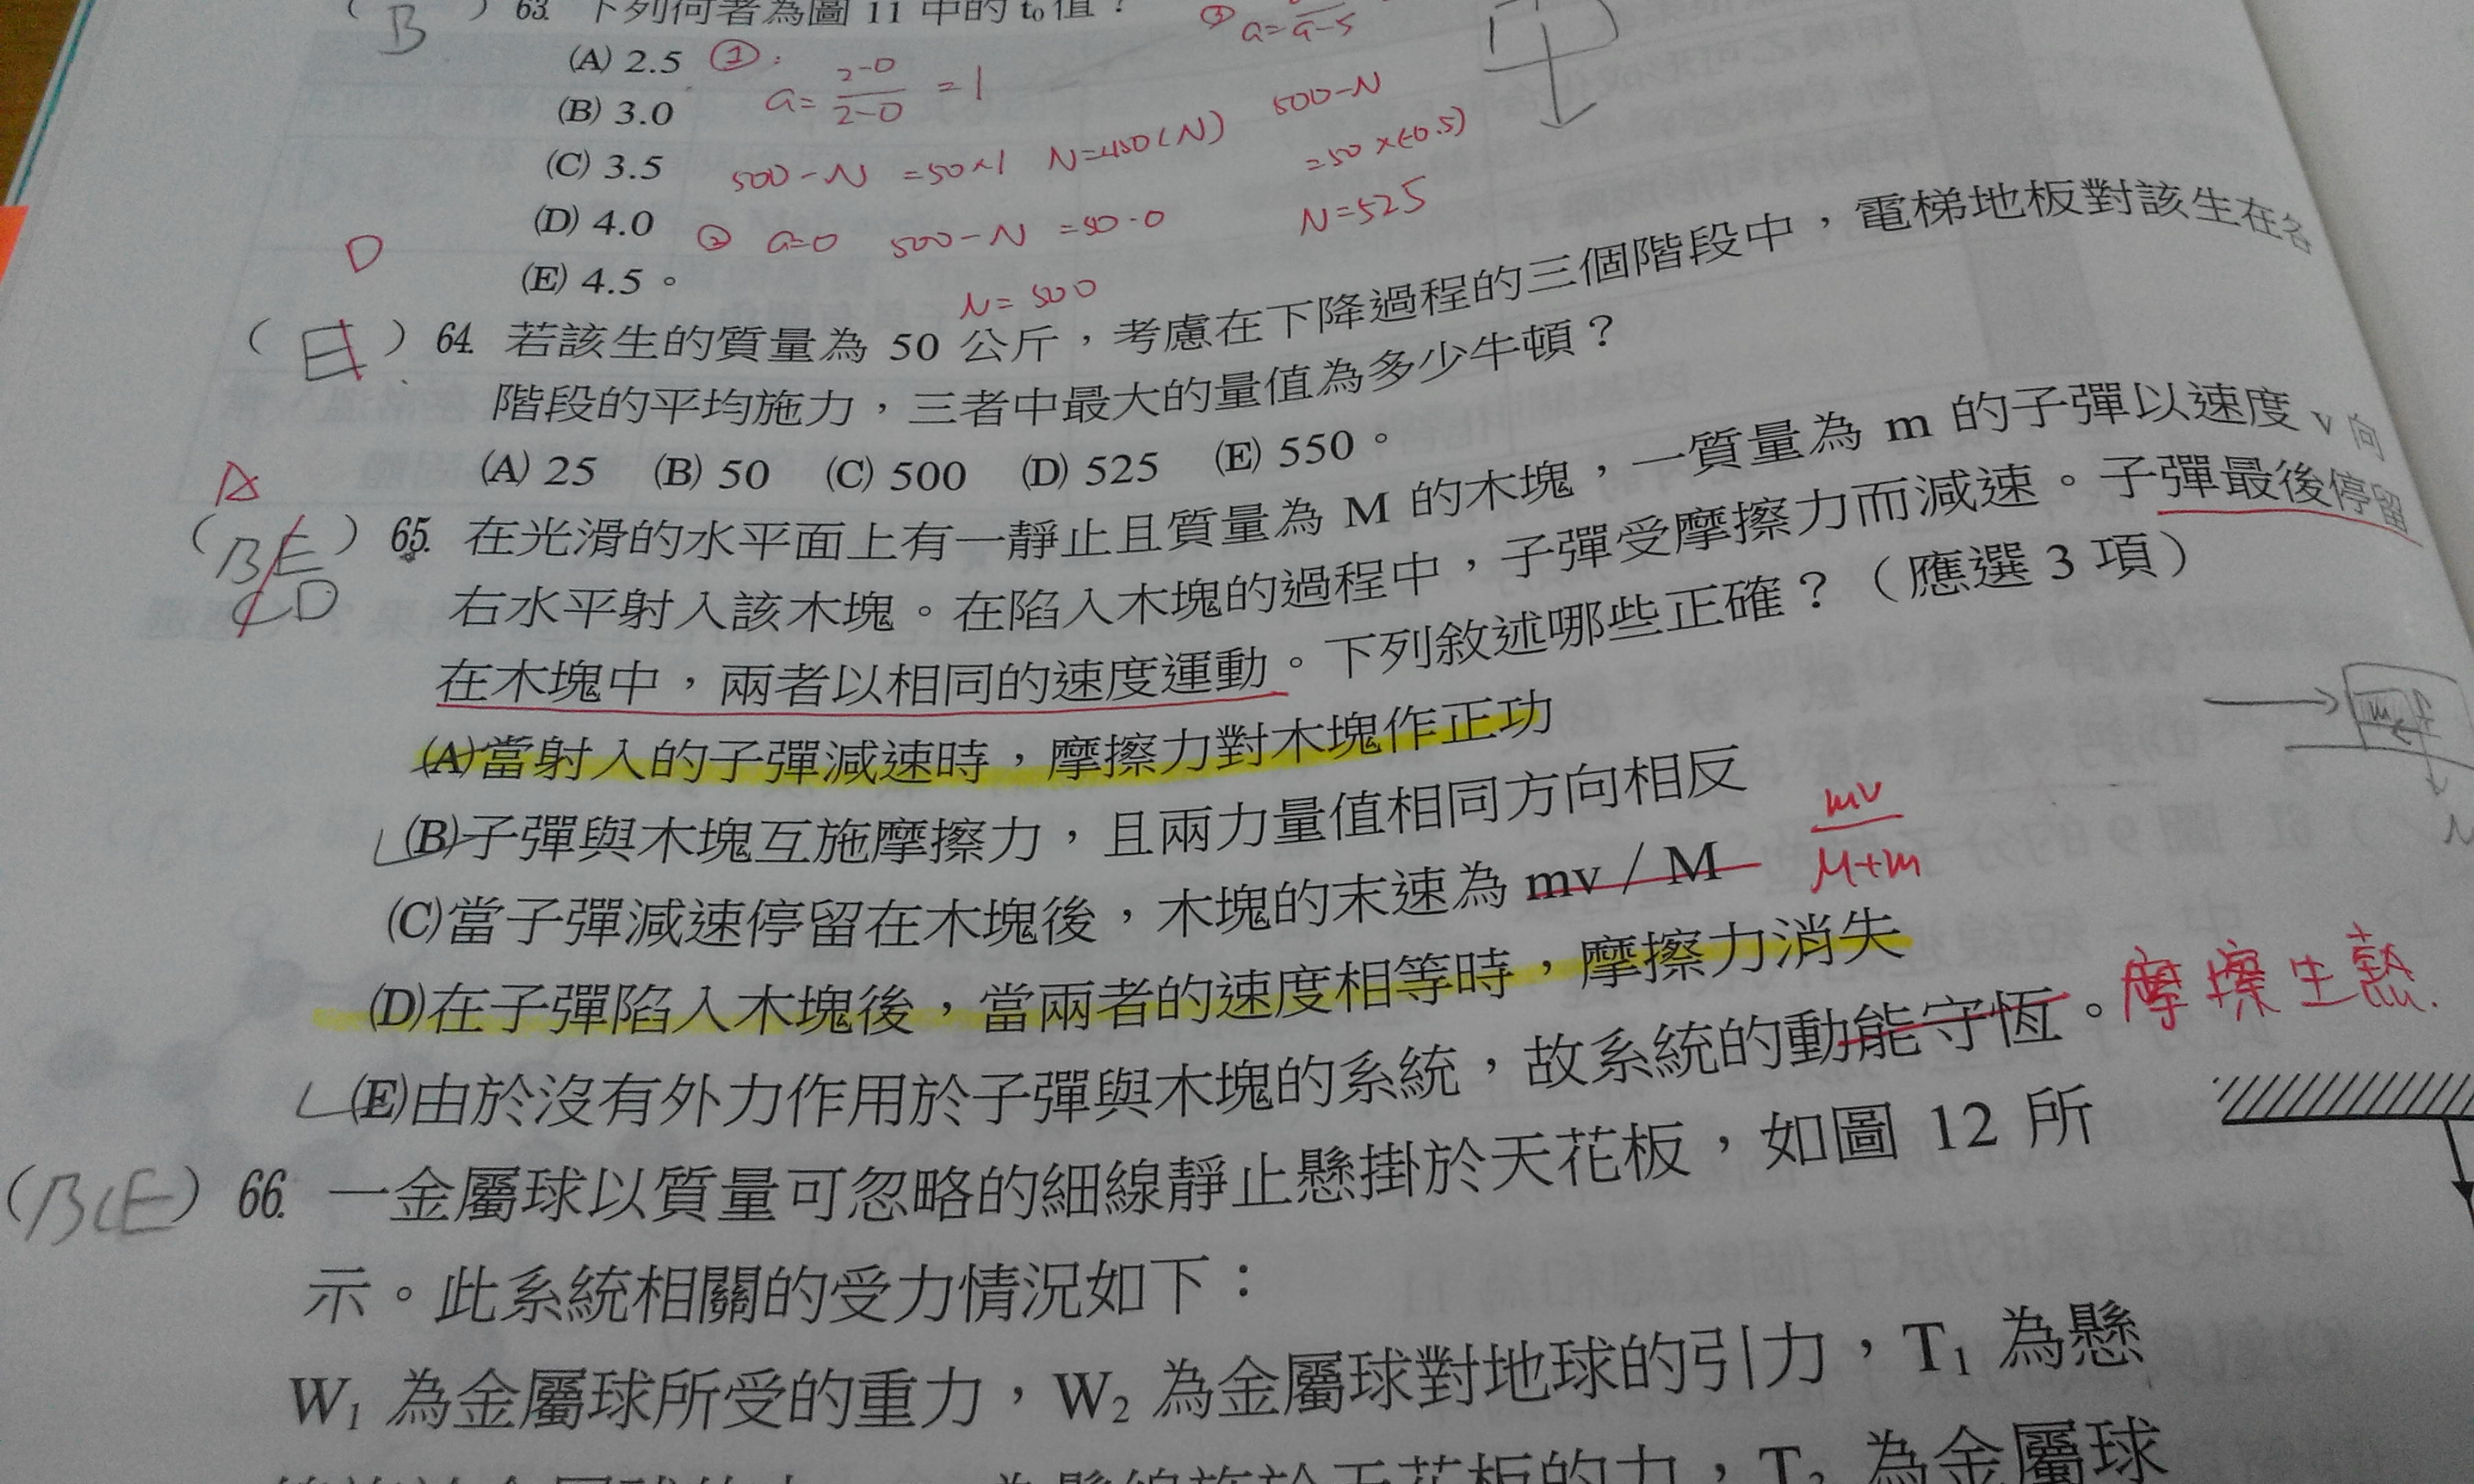 (B) 63. 下列何者為圖 11 中的 t₀ 值?
③ a=
(A) 2.5 ① : a= 2-0 / 2-0 = 1
(B) 3.0
(C) 3.5 500-N =50×1 N=450(N) 500-N =50×(-0.5)
(D) 4.0 ② a=0 500-N =50·0 N=525
(E) 4.5。 N=500
D
(E) 64. 若該生的質量為 50 公斤,考慮在下降過程的三個階段中,電梯地板對該生在各
階段的平均施力,三者中最大的量值為多少牛頓?
(A) 25 (B) 50 (C) 500 (D) 525 (E) 550。
A
(BE CD) 65. 在光滑的水平面上有一靜止且質量為 M 的木塊,一質量為 m 的子彈以速度 v 向
右水平射入該木塊。在陷入木塊的過程中,子彈受摩擦力而減速。子彈最後停留
在木塊中,兩者以相同的速度運動。下列敘述哪些正確?(應選 3 項)
(A)當射入的子彈減速時,摩擦力對木塊作正功
(B)子彈與木塊互施摩擦力,且兩力量值相同方向相反
(C)當子彈減速停留在木塊後,木塊的末速為 mv / M mv / M+m
(D)在子彈陷入木塊後,當兩者的速度相等時,摩擦力消失
(E)由於沒有外力作用於子彈與木塊的系統,故系統的動能守恆。摩擦生熱.
m
N
(BCE) 66. 一金屬球以質量可忽略的細線靜止懸掛於天花板,如圖 12 所
示。此系統相關的受力情況如下:
W₁ 為金屬球所受的重力,W₂ 為金屬球對地球的引力,T₁ 為懸
為懸線施於天花板的力,T₃ 為金屬球